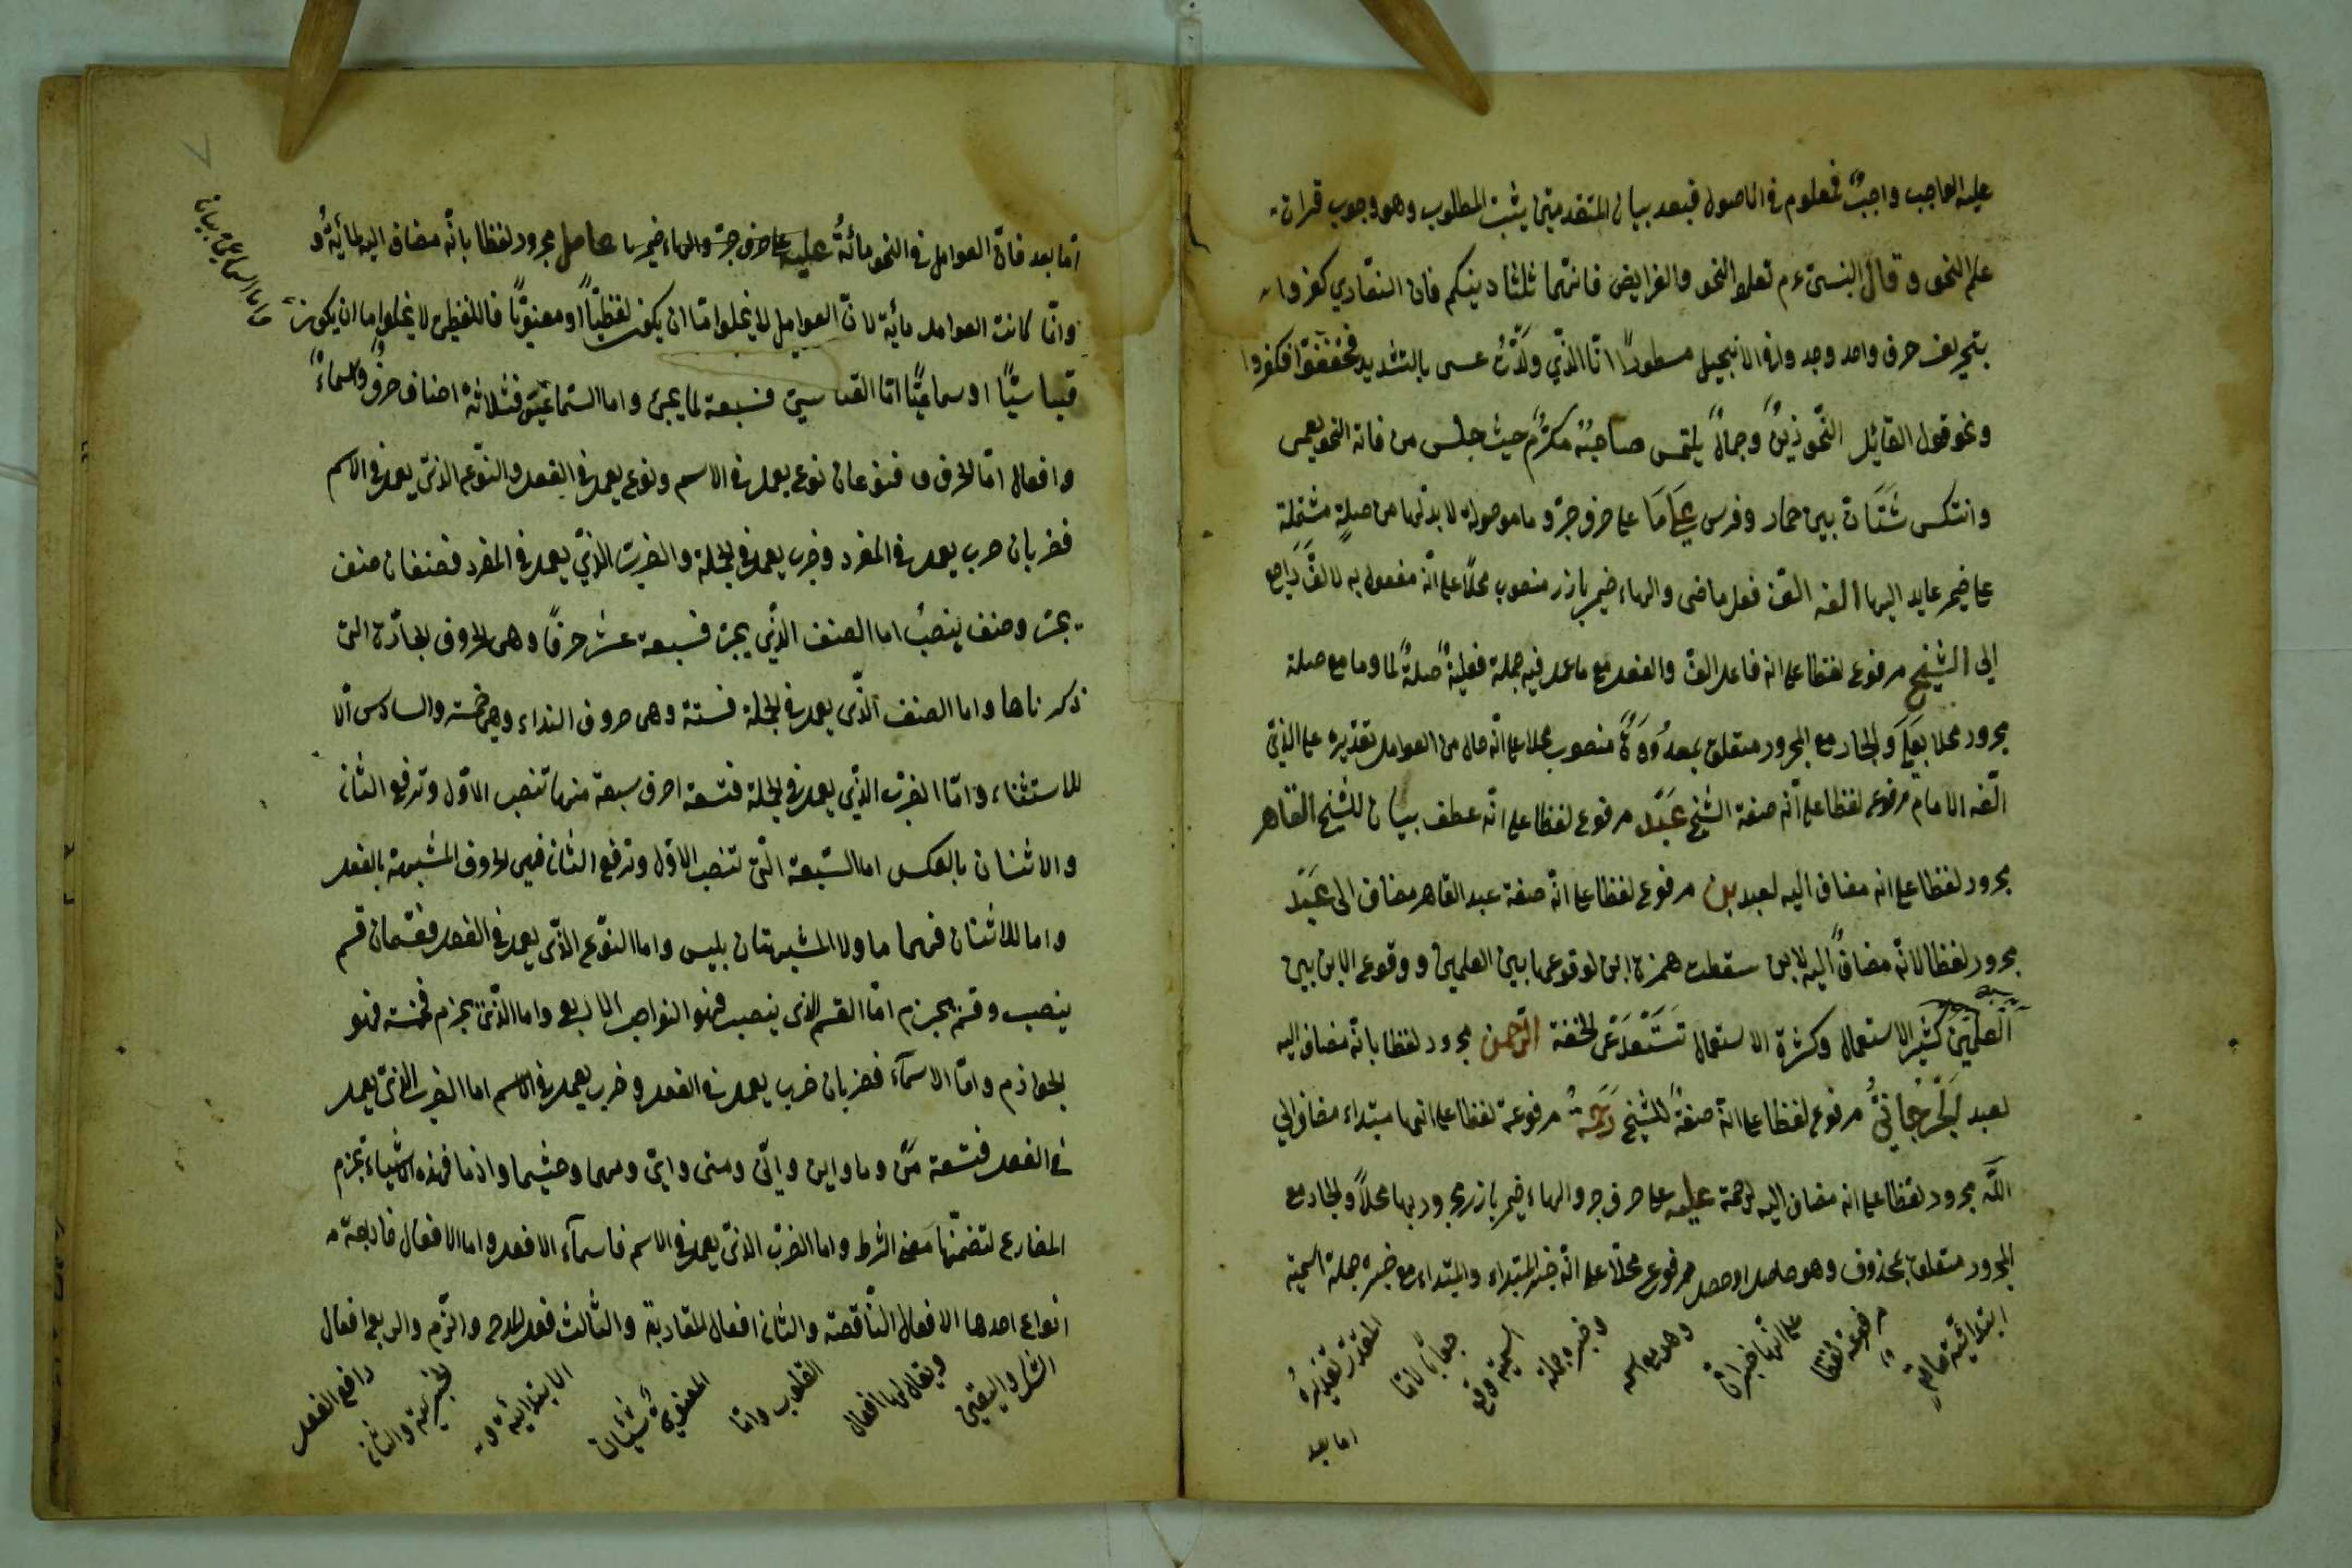 عليه الواجب واجبٌ فمعلوم في الاصول فبعد بيان المتقدمتين يثبت المطلوب وهو وجوب قرات
علم النحو وقال النبيّ عم تعلموا النحو والفرايض فانهما ثلثا دينكم فان النصاري كفروا
بتحريف حرف واحد وجد وا في الانجيل مسطورًا انا الذّي ولّدتُ عسى بالتشديد فخففوا فكفروا
ونحو قول القايل النّحو زينٌ وجمالٌ يلتمس صاحبُه مكرّمٌ حيث جلس من فاته النحو يعمى
وانتكس شَتّان بين حمار وفرس عَلَى مَا على حرف جرّ و ما موصوله لا بد لها من صلةٍ مشتملة
على ضمير عايد اليها الّفه الّف فعل ماضى والهاء ضمير بارز منصوب محلاً على انّه مفعول به لالّف راجع
الى الشيخ مرفوع لفظا على انه فاعل الّف والفعل مع ما عمل فيه جملة فعليةٌ صلةٌ لما وما مع صلة
مجرور محلا بعَلَى والجار مع المجرور متعلق بمعدُودَةٌ منصوب محلا على انّه حال من العوامل تقديره على الذّي
الّفه الامام مرفوع لفظا على انّه صفة الشيخ عَبْد مرفوع لفظا على انّه عطف بيان للشيخ القاهر
مجرور لفظا على انه مضاف اليه لعبد بن مرفوع لفظا على انّه صفة عبد القاهر مضاف الى عَبْد
مجرور لفظا لانّه مضافٌ اليه لابن سقطت همزة ابن لوقوعها بين العلمين ووقوع الابن بين
العلمين كثير الاستعمال وكثرة الاستعمال تَسْتَدعى الخفة الرّحمن مجرور لفظا بانّه مضاف اليه
لعبد الجُرْجانيُّ مرفوع لفظا على انّه صفةٌ للشيخ رَحْمَةُ مرفوعة لفظا على انها مبتداء مضاف الي
اللّه مجرور لفظا على انه مضاف اليه لرحمة عليه على حرف جر والهاء ضمير بارز مجرور بها محلاً والجار مع
المجرور متعلق بمحذوف وهو حاصل او حصل مرفوع محلاً على انّه خبر المبتداء والمبتداء مع خبره جملة اسمية
ابتدائية
مرفوعة لفظا
على انّها خبر انّ
وهو مع اسمه
وخبره جملة
اسمية وقع
جوابًا لامّا
المقدّر تقديرُه
اما بعد
امّا بعد فانّ العوامل في النحو مائةُ عليه على حرف جرّ والهاء ضمير عامل مجرور لفظا بانّه مضاف اليه لمائةُ و
وانّما كانت العوامل مائة لانّ العوامل لا يخلوا امّا ان يكون لفظيًّا او معنويًّا فاللفظى لا يخلوا اما ان يكون
قياسيًّا او سماعيًّا امّا القياسيّ فسبعة لما يجئ واما السّماعيّ فثلاثة اصناف حرفٌ واسماءٌ
وافعال امّا الحروف فنوعان نوع يعمل في الاسم ونوع يعمل في الفعل والنّوع الذى يعمل في الاسم
فضربان ضرب يعمل في المفرد وضرب يعمل في الجملة والضرب الذّي يعمل في المفرد فصنفان صنف
يجرّ وصنف ينصبُ اما الصنف الذّي يجرّ فسبعة عشر حرفًا وهى الحروف الجارّة التى
ذكرناها واما الصنف الّذى يعمل في الجملة فستة وهى حروف النداء وهى خمسة والسادس الّا
للاستثناء وامّا الضرب الذّي يعمل في الجملة فتسعة احرف سبعة منها تنصب الاوّل وترفع الثانى
والاثنان بالعكس اما السّبعة الّتى تنصب الاوّل وترفع الثاني فهى الحروف المشبهة بالفعل
واما الاثنان فهما ما ولا المشبهتان بليس واما النوّع الذّى يعمل في الفعل فقسمان قسم
ينصب وقسم يجزم امّا القسم الذى ينصب فهو النواصب الاربع واما الذّى يجزم فخمسة فهو
الجوازم وامّا الاسمآء فضربان ضرب يعمل في الفعل وضرب يعمل في الاسم اما الضرب الذى يعمل
في الفعل فتسعة مَنْ وما واين وانّى ومتى وايّ ومهما وحيثما واذما فهذه الاشياء تجزم
المضارع لتضمّنها معنى الشرط واما الضرب الذى يعمل في الاسم فاسمآء الافعل واما الافعال فاربعة
انواع احدها الافعال النّاقصة والثانى افعال المقاربة والثالث فعل المدح والذّم والربع افعال
الشك واليقين
ويقال لها افعال
القلوب وامّا
المعنوى شيئان
الابتدائية
الخبرية والثانى
رافع الفعل